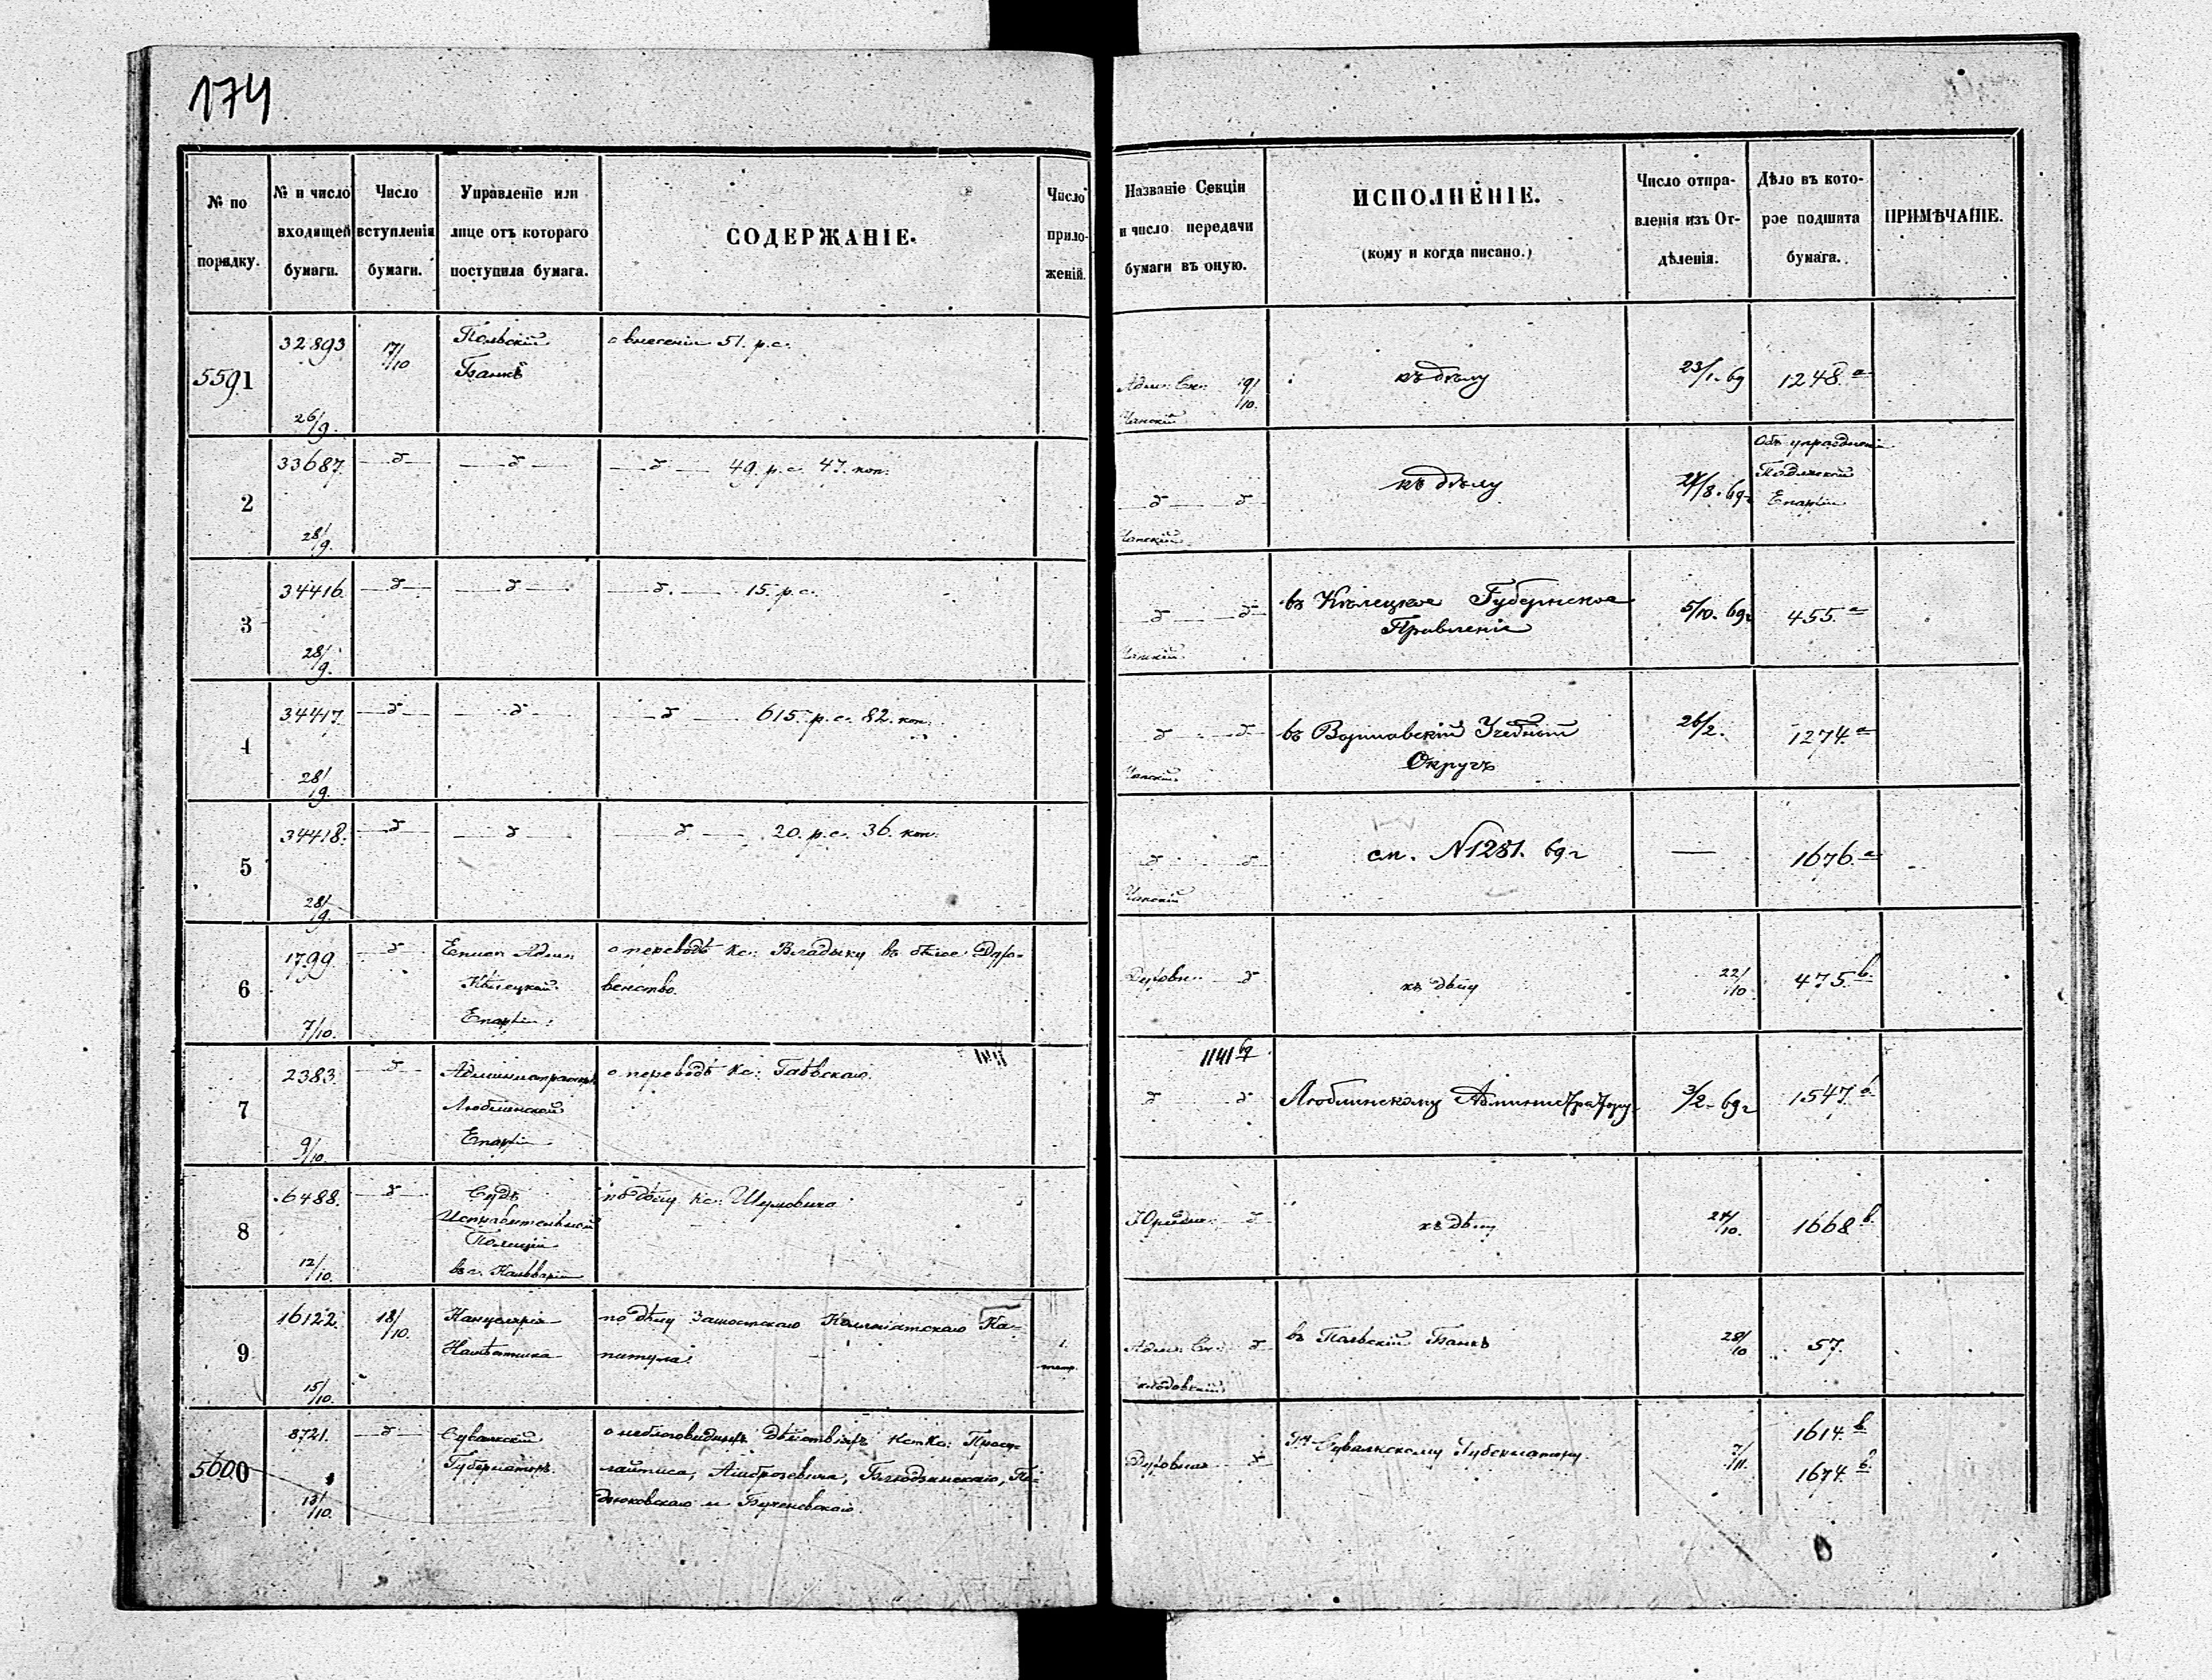 174
№ по порядку.
№ и число входящей бумаги.
Число вступленія бумаги.
Управленіе или лице отъ котораго поступила бумага.
СОДЕРЖАНІЕ.
Число прило- женій.
Названіе Секціи и число передачи бумаги въ оную.
ИСПОЛНЕНІЕ.
(кому и когда писано.)
Число отпра- вленія изъ От- дѣленія.
Дѣло въ кото- рое подшита бумага.
ПРИМѢЧАНІЕ.
5591
32893
26/9.
17/10
Польскій
Банкъ
о внесеніи 51. р.с.
19/10.
къ дѣлу
23/1. 69
1248.а
2
33687.
28/9.
—δ—
—δ—
—δ— 49. р.с. 47. коп.
—δ— —δ
къ дѣлу
27/8. 69 г
Объ упраздненіи
Подляской
Епархіи
3
34416.
28/9.
—δ—
—δ—
—δ.— 15. р.с.
δ — δ
въ Кѣлецкое Губернское
Правленіе
5/10. 69 г
455.а
4
34417.
28/9.
—δ—
—δ—
—δ— 615. р.с. 82. коп.
δ — δ
въ Варшавскій Учебный
Округъ
26/2.
1274.а
5
34418.
28/9.
—δ—
—δ—
—δ— 20. р.с. 36. коп.
δ δ
см. N1281. 69 г
—
1676.а
6
1799.
7/10.
—δ—
Епископ Адми:
Кѣлецкой
Епархіи.
о переводѣ Кс: Владыки въ бѣлое Духо-
венство.
Духовн. δ
къ дѣлу
22/10
475.в.
7
2383.
9/10.
—δ—
Администраторъ
Люблинской
Епархіи
о переводѣ Кс:
1141 69
δ δ
Люблинскому Администратору
3/2. 69 г
1547.в.
8
6488.
12/10.
—δ—
Судъ
Исправительной
Полиціи
въ г. Кальваріи
по дѣлу Кс: Шумовича
Юридич. δ
къ дѣлу
24/10.
1668.в.
9
16122.
15/10.
18/10.
Канцелярія
Намѣстника
по дѣлу Замостскаго Коллегіатскаго Ка-
питула.
1.
Адми: Ск: δ
въ Польскій Банкъ
28/10
57.
5600
8721.
13/10.
—δ—
Сувалкскій
Губернаторъ.
о неблаговидныхъ дѣйствіяхъ
Амброзевича,
и
Духовная δ
Сувалкскому Губернатору.
7/11.
1614.в
1674.в.